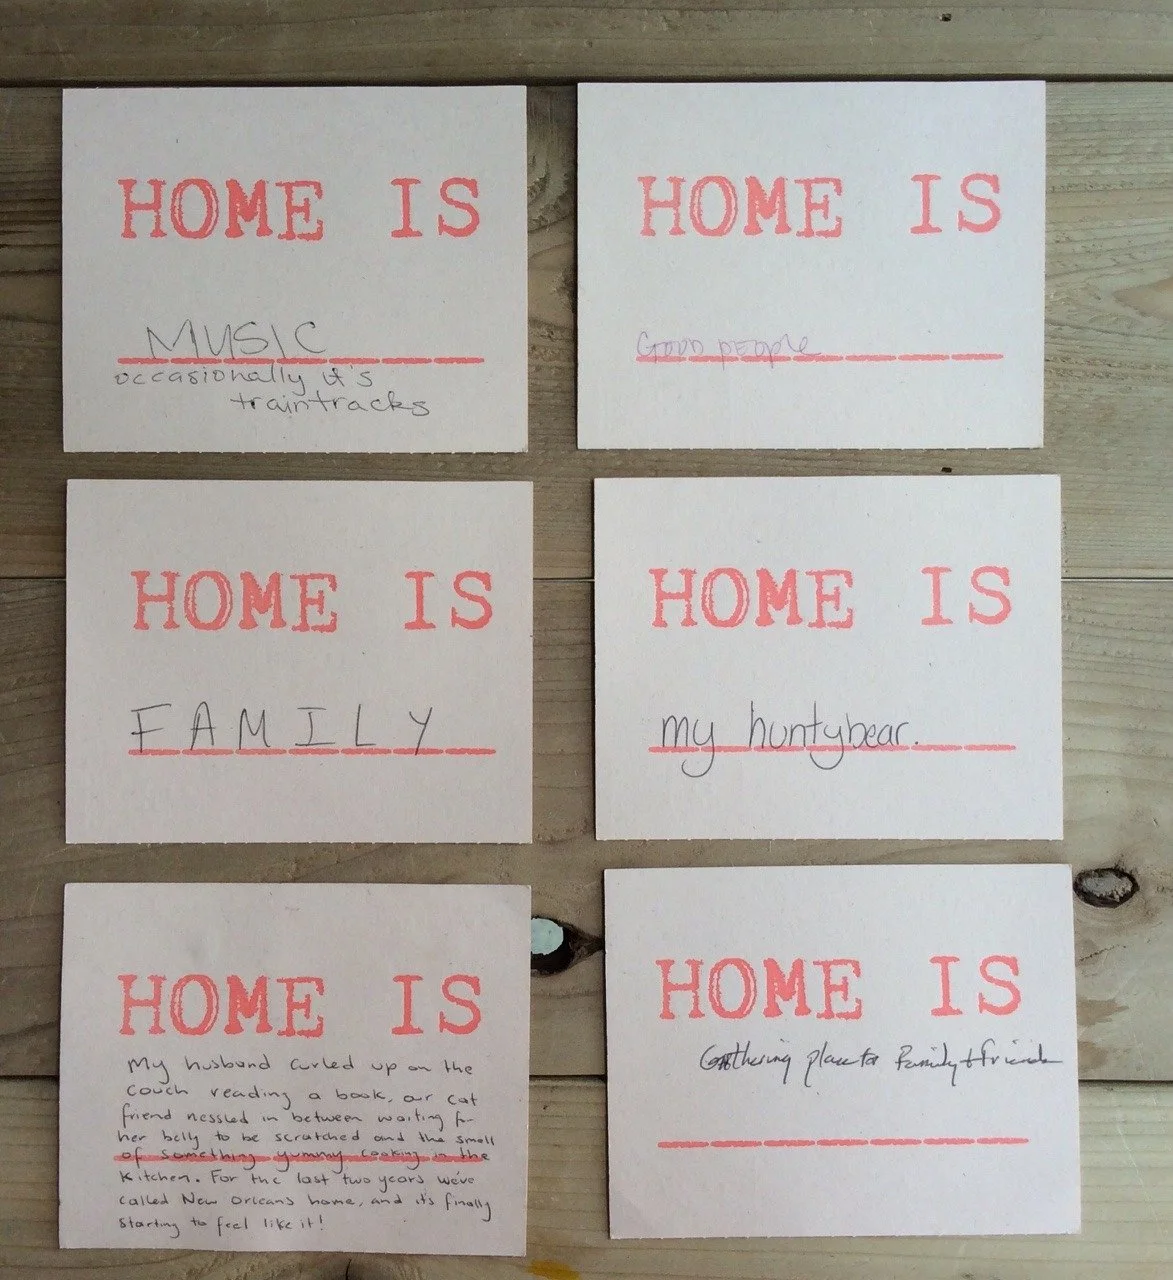 HOME IS
MUSIC
occasionally it's
traintracks
HOME IS
GOOD pEOplE
HOME IS
FAMILY
HOME IS
my huntybear.
HOME IS
My husband curled up on the
couch reading a book, our cat
friend nessled in between waiting for
her belly to be scratched and the smell
of something yummy cooking in the
kitchen. For the last two years we've
called New Orleans home, and it's finally
starting to feel like it!
HOME IS
Gathering place for Family + friends